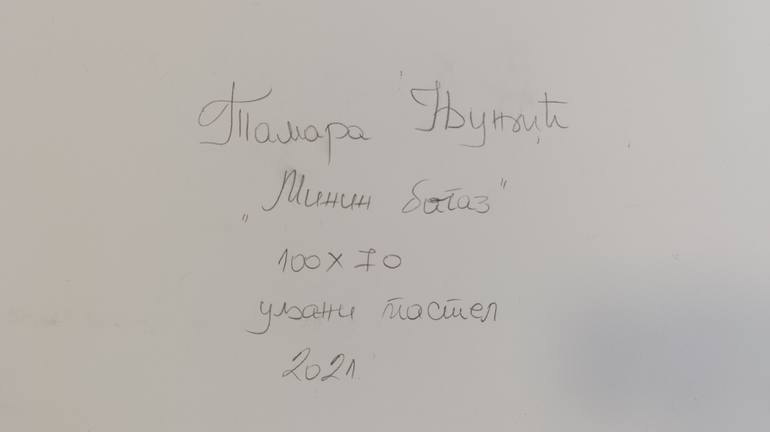 Тамара
„Минин богаз"
100x70
уљани пастел
2021